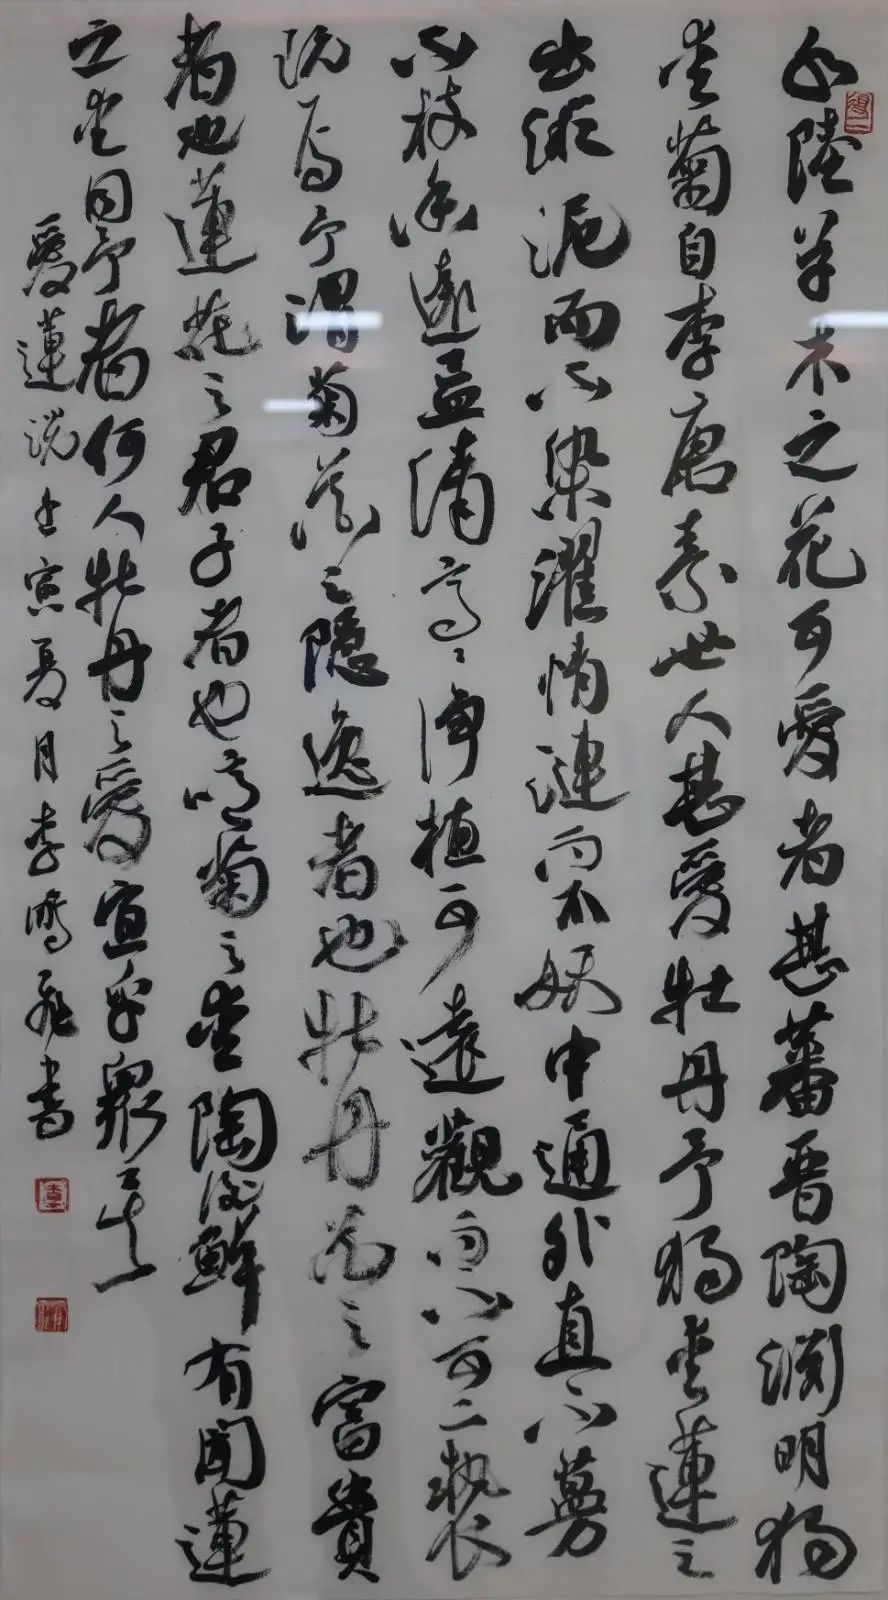 水陸草木之花可愛者甚蕃晋陶淵明獨
愛菊自李唐来世人甚愛牡丹予獨愛蓮之
出淤泥而不染濯清漣而不妖中通外直不蔓
不枝香遠益清亭亭净植可遠觀而不可褻
玩焉予謂菊花之隱逸者也牡丹花之富貴
者也蓮花之君子者也噫菊之愛陶後鮮有聞蓮
之愛同予者何人牡丹之愛宜乎衆矣
愛蓮説壬寅夏月李鴻飛書